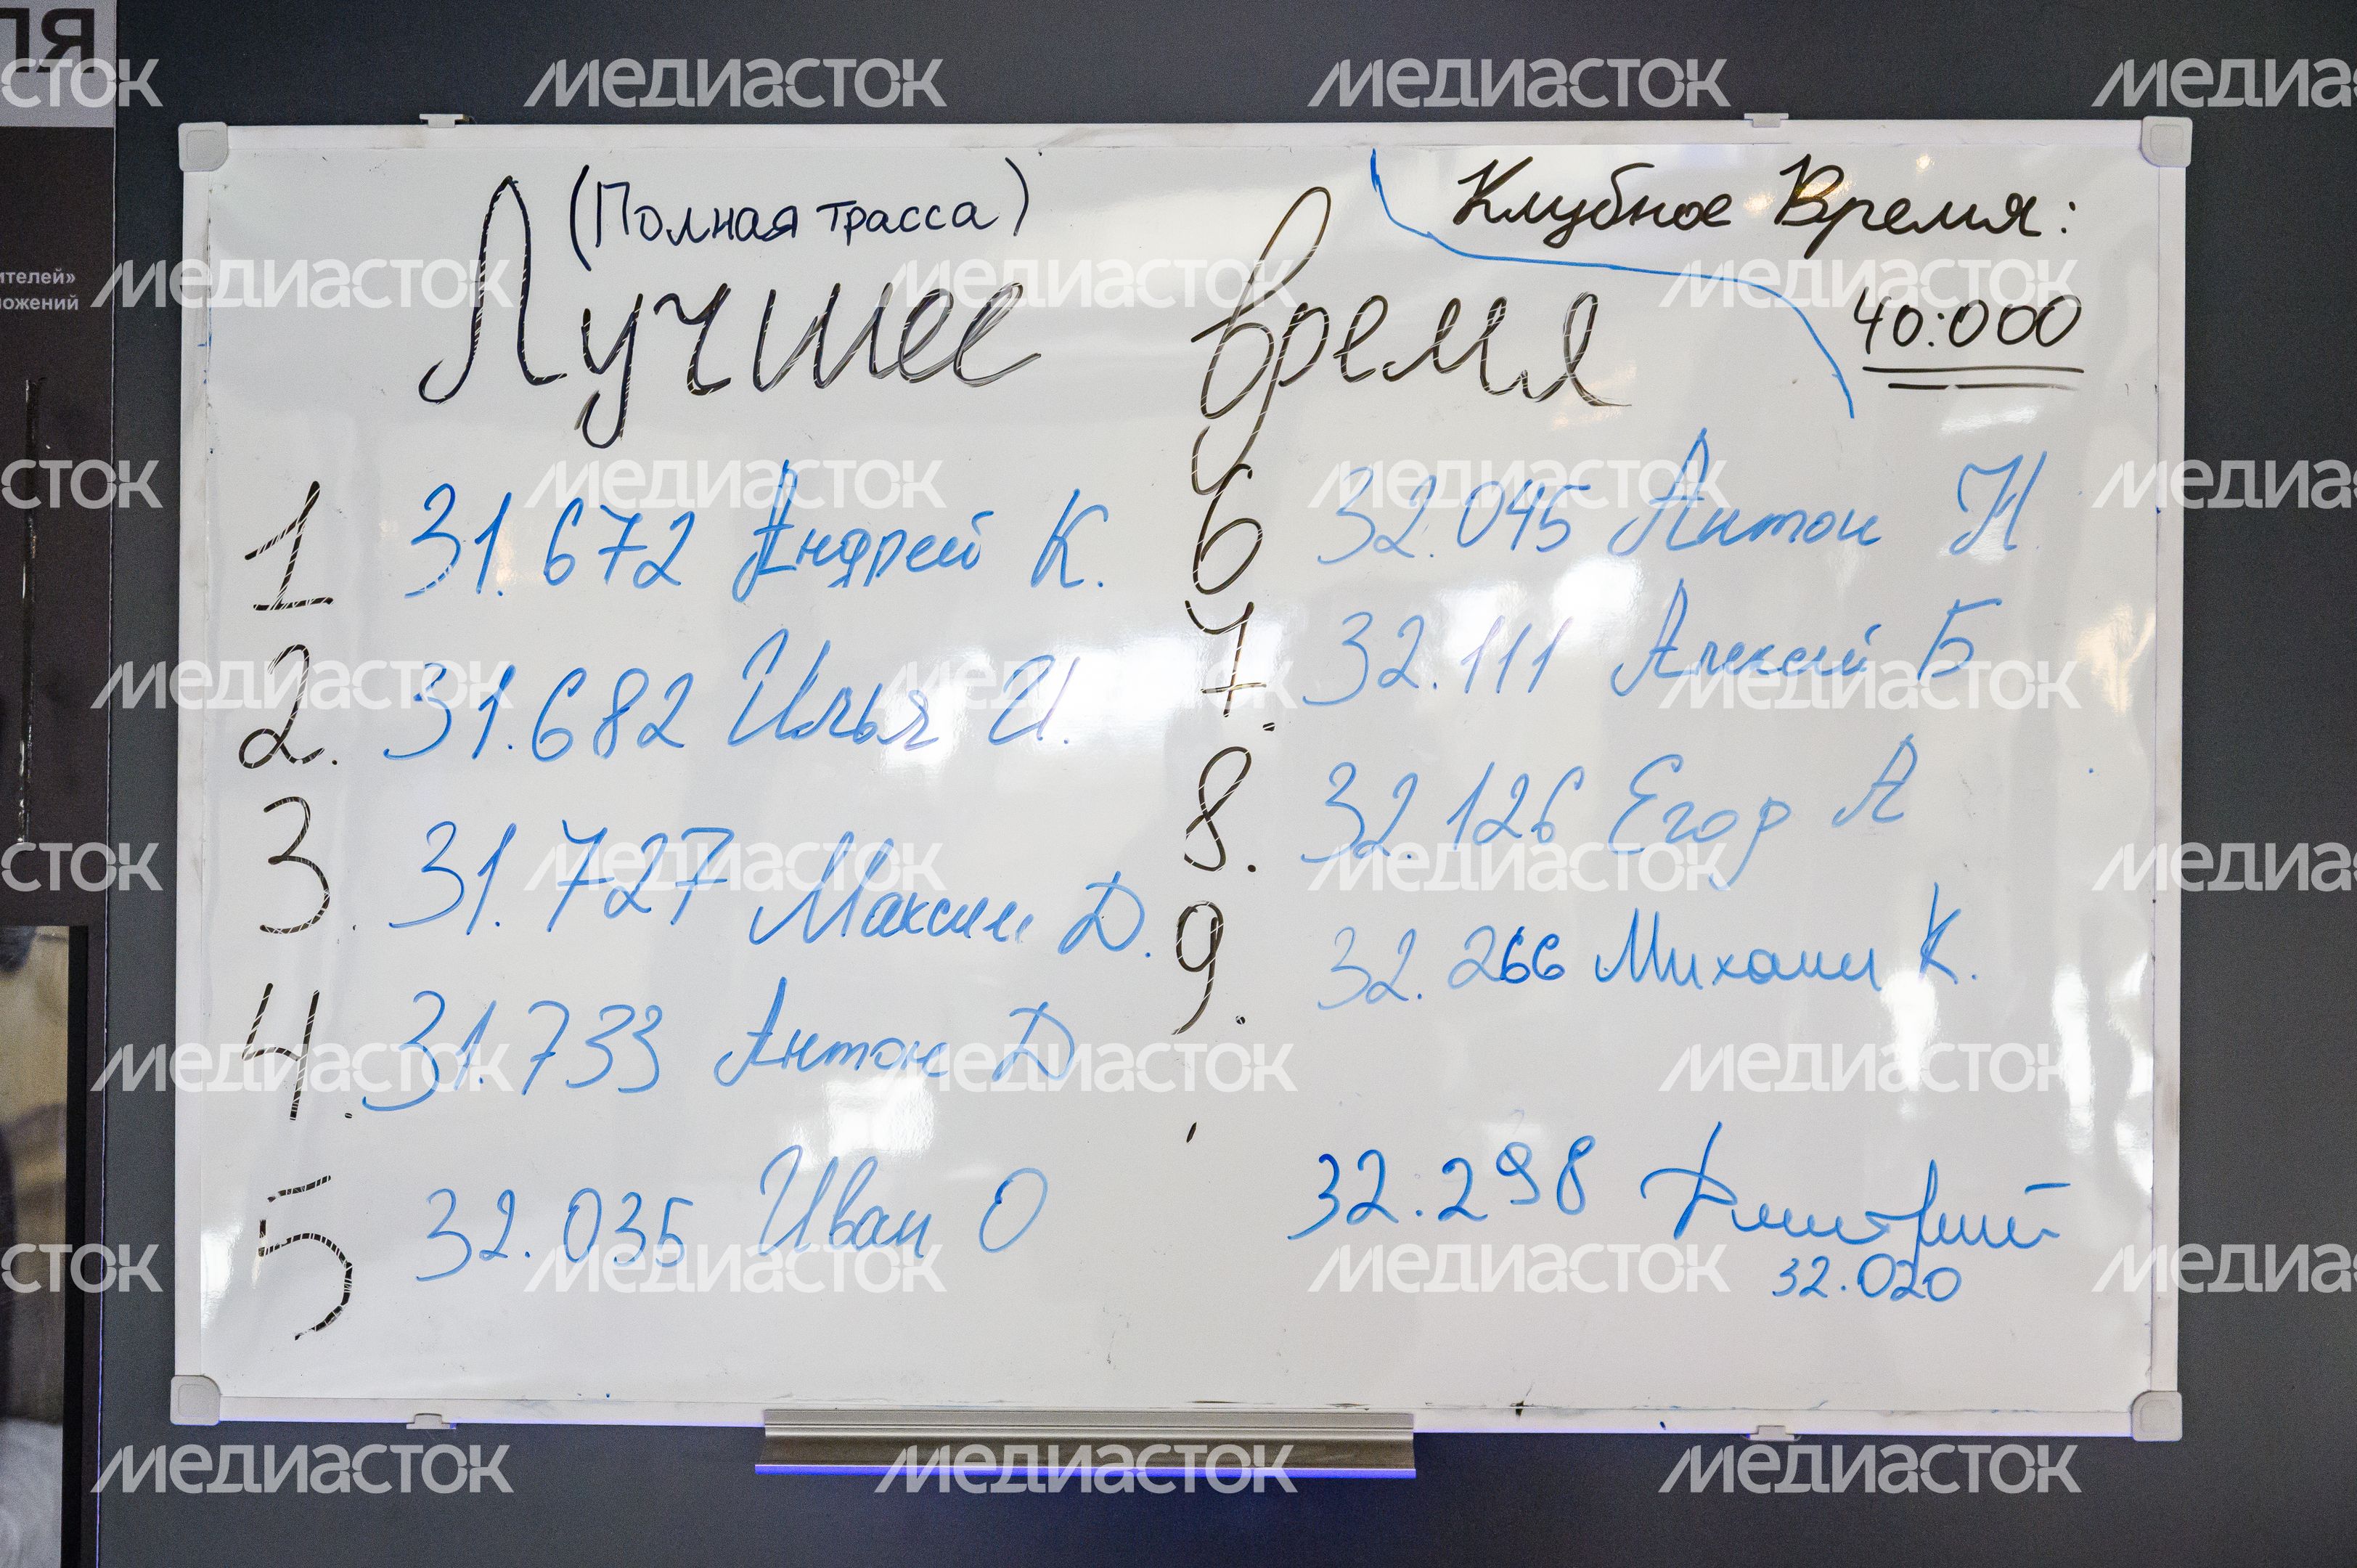 ЛЯ
ителей»
ложений
(Полная трасса)
Лучшее время
Клубное Время:
40:000
1 31.672 Андрей К.
2. 31.682 Илья И.
3. 31.727 Максим D.
4. 31.733 Антон D
5 32.035 Иван О
6 32.045 Антон Н
7. 32.111 Алексей Б
8. 32.126 Егор А
9. 32.266 Михаил К.
32.298 Дмитрий
32.020
МЕДИАСТОК